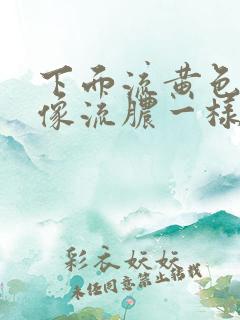 下面流黄色
像流脓一样
彩衣妖妖
未经同意禁止转载